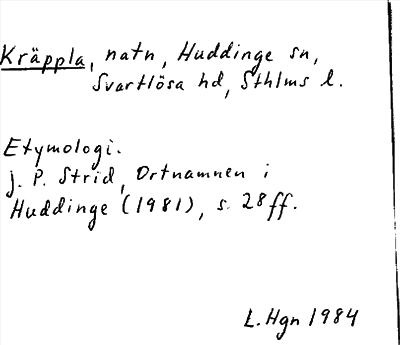 Kräppla, natn, Huddinge sn,
Svartlösa hd, Sthlms l.
Etymologi.
J. P. Strid, Ortnamnen i
Huddinge (1981), s. 28ff.
L. Hgn 1984